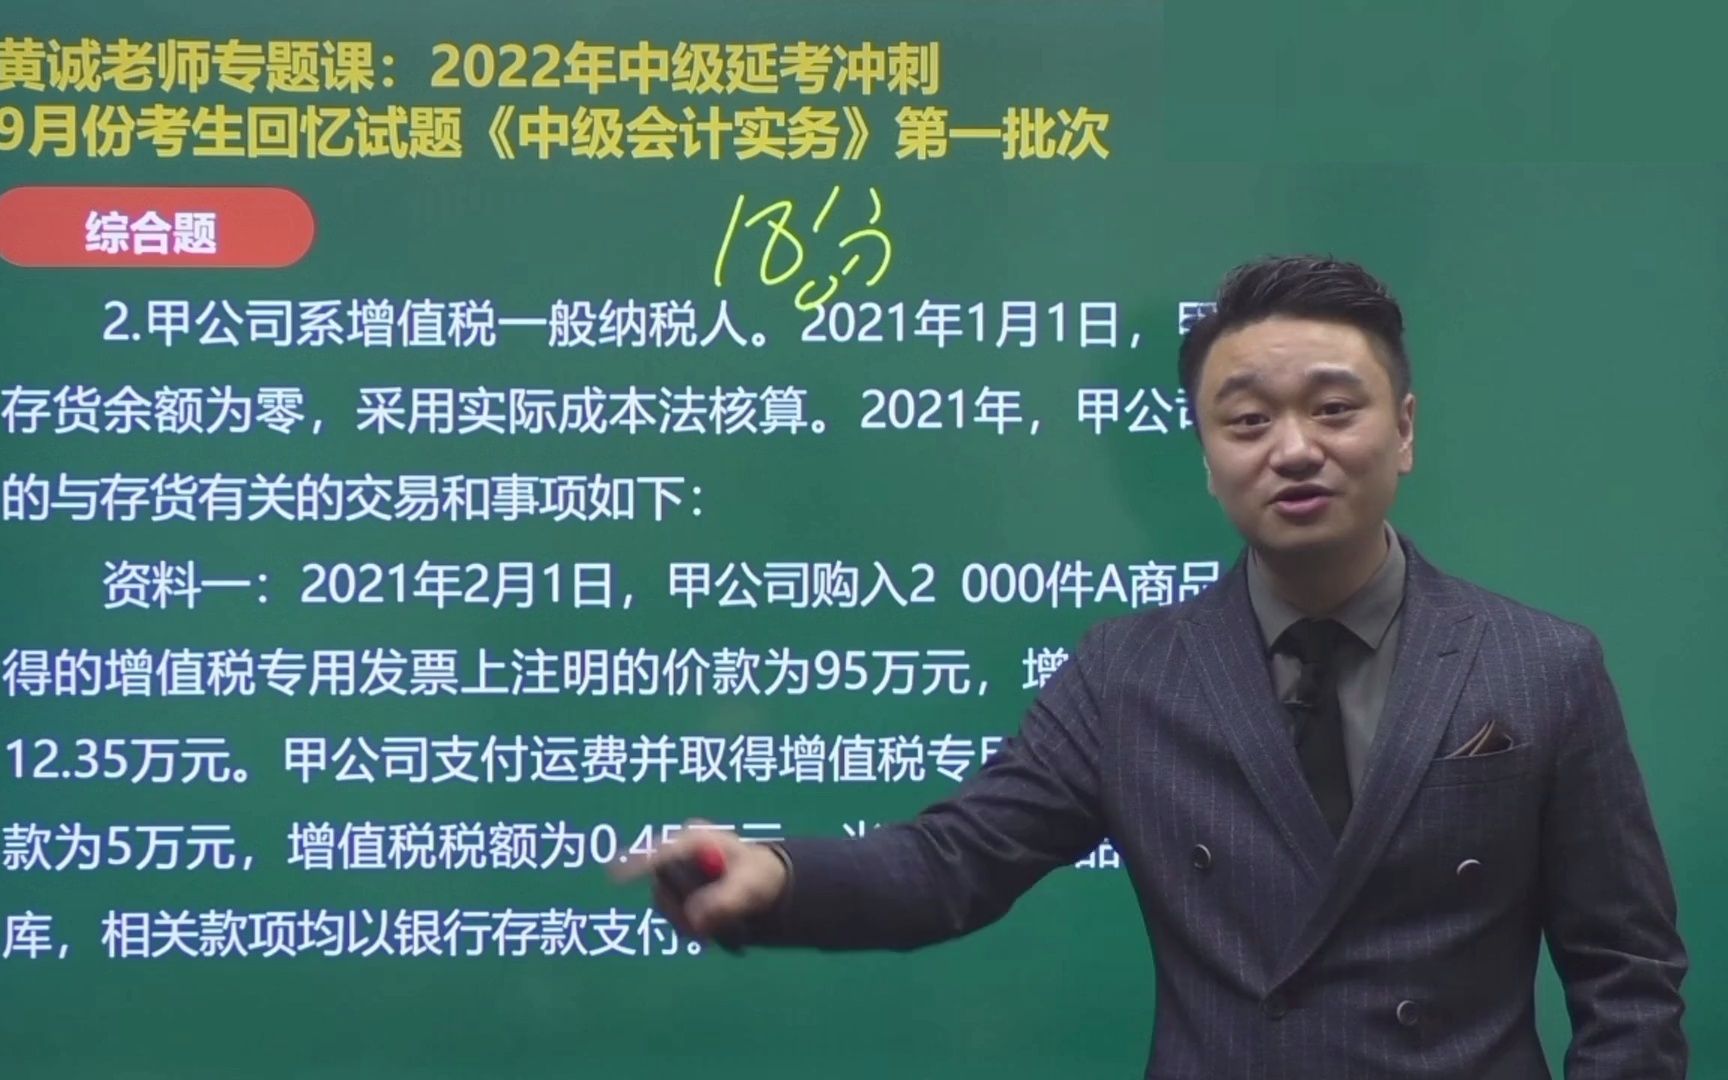 黄诚老师专题课：2022年中级延考冲刺
9月份考生回忆试题《中级会计实务》第一批次
综合题
18分
2.甲公司系增值税一般纳税人。2021年1月1日，甲
存货余额为零，采用实际成本法核算。2021年，甲公司
的与存货有关的交易和事项如下：
资料一：2021年2月1日，甲公司购入2 000件A商品
得的增值税专用发票上注明的价款为95万元，增
12.35万元。甲公司支付运费并取得增值税专用
款为5万元，增值税税额为0.45万元
品
库，相关款项均以银行存款支付。